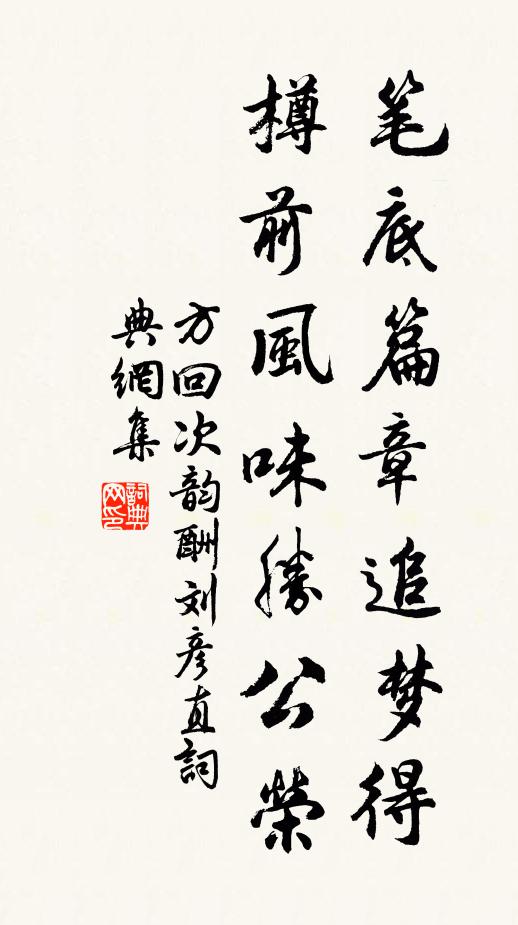 笔底篇章追梦得
樽前風味勝公榮
方回次韵酬刘彦直詞
典網集
詞典网印